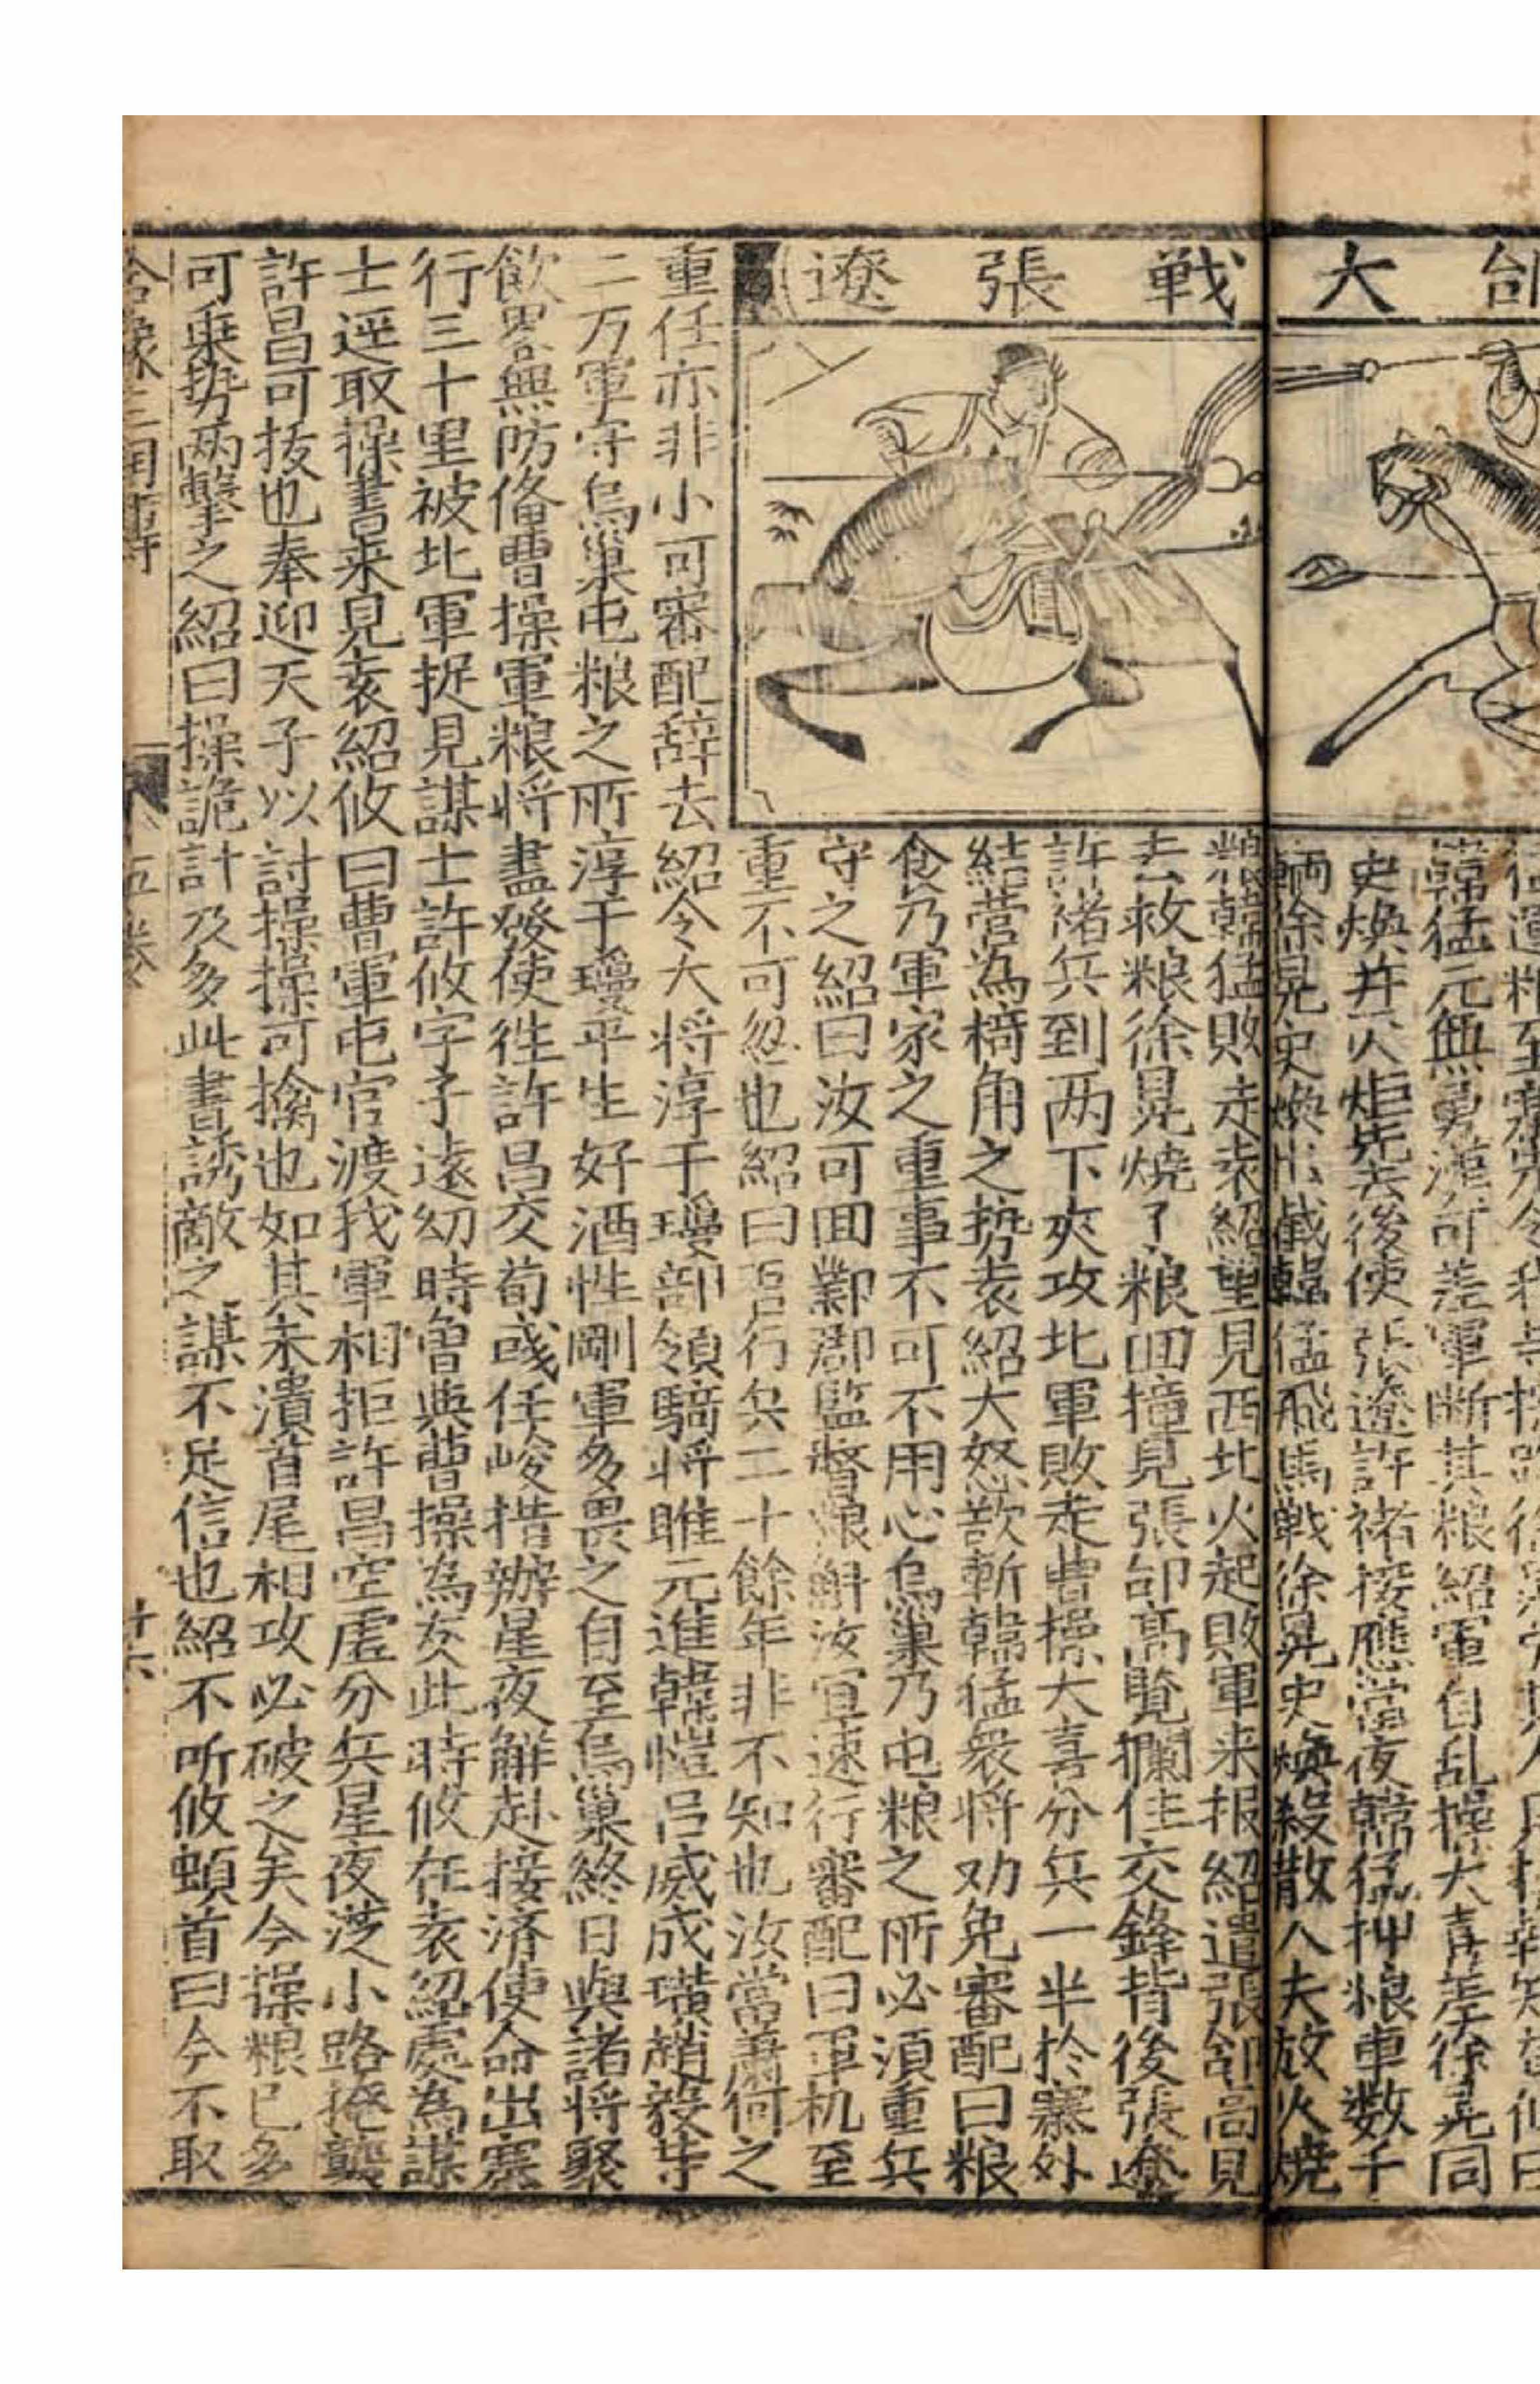 郃大戰張遼
韓猛元無勇漢可差軍断其粮紹軍自乱操大喜差徐晃同
史煥并火炬先去後使張遼許褚接應當夜韓猛押粮車数千
輛徐晃史煥出截韓猛飛馬戦徐晃史煥殺散人夫放火燒
粮韓猛敗走袁紹望見西北火起敗軍来报紹遣張郃高見
去救粮徐晃燒了粮囬撞見張郃高覽攔住交鋒背後張遼
許褚兵到两下夾攻北軍敗走曹操大喜分兵一半扵寨外
結营為犄角之勢袁紹大怒欲斬韓猛衆将劝免審配曰粮
食乃軍家之重事不可不用心烏巢乃屯粮之所必湏重兵
守之紹曰汝可囬鄴郡監督粮斛汝宜速行審配曰軍机至
重不可忽也紹曰吾行兵二十餘年非不知也汝當蕭何之
重任亦非小可審配辞去紹令大将淳于瓊部領騎将睢元進韓愷吕威成璜趙毅等
二万軍守烏巢屯粮之所淳于瓊平生好酒性剛軍多畏之自至烏巢終日與諸将聚
飲畧無防俻曹操軍粮将盡發使徃許昌交荀彧任峻措辦星夜觧赴接済使命出寨
行三十里被北軍捉見謀士許攸字子遠幼時曾與曹操為友此時攸在袁紹處為謀
士逕取操書来見袁紹攸曰曹軍屯官渡我軍相拒許昌空虚分兵星夜従小路掩襲
許昌可拔也奉迎天子以討操操可擒也如其未潰首尾相攻必破之矣今操粮已多
可乗勢两擊之紹曰操詭計及多此書誘敵之謀不足信也紹不听攸頓首曰今不取
合像三国志傳 五巻 廿六